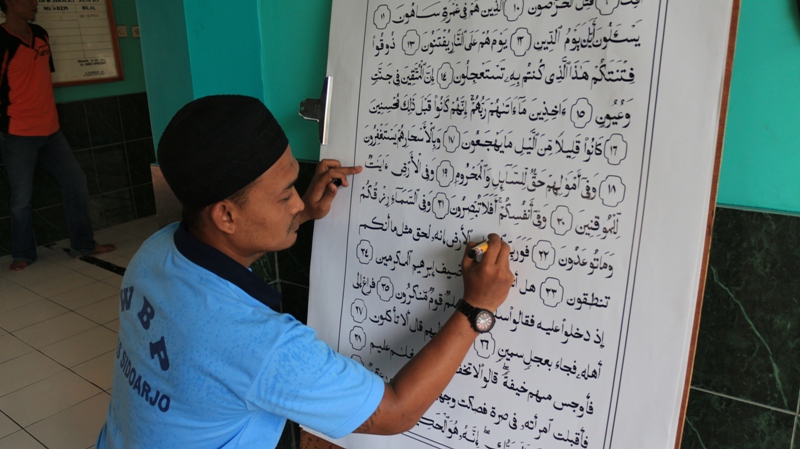 قتل الخرصون ١٠ الذين هم فى غمرة ساهون ١١
يسـٔلون أيان يوم الدين ١٢ يوم هم على النار يفتنون ١٣ ذوقوا
فتنتكم هذا الذى كنتم به تستعجلون ١٤ إن المتقين فى جنت
وعيون ١٥ ءاخذين ما ءاتىهم ربهم إنهم كانوا قبل ذلك محسنين
١٦ كانوا قليلا من اليل ما يهجعون ١٧ وبالأسحار هم يستغفرون
١٨ وفى أمولهم حق للسايل والمحروم ١٩ وفى الأرض ءايت
للموقنين ٢٠ وفى أنفسكم أفلا تبصرون ٢١ وفى السماء رزقكم
وما توعدون ٢٢ فورب الأرض انه لحق مثل ما أنكم
تنطقون ٢٣ هل ضيف إبرهيم المكرمين ٢٤
إذ دخلوا عليه فقالوا قوم منكرون ٢٥ فراغ إلى
أهله فجاء بعجل سمين ٢٦ قال ألا تأكلون ٢٧
فأوجس منهم خيفة قالوا لا تخف بغلم عليم ٢٨
فأقبلت امرأته فى صرة فصكت
إنه هو الحكيم
WBP
SIDOARJO